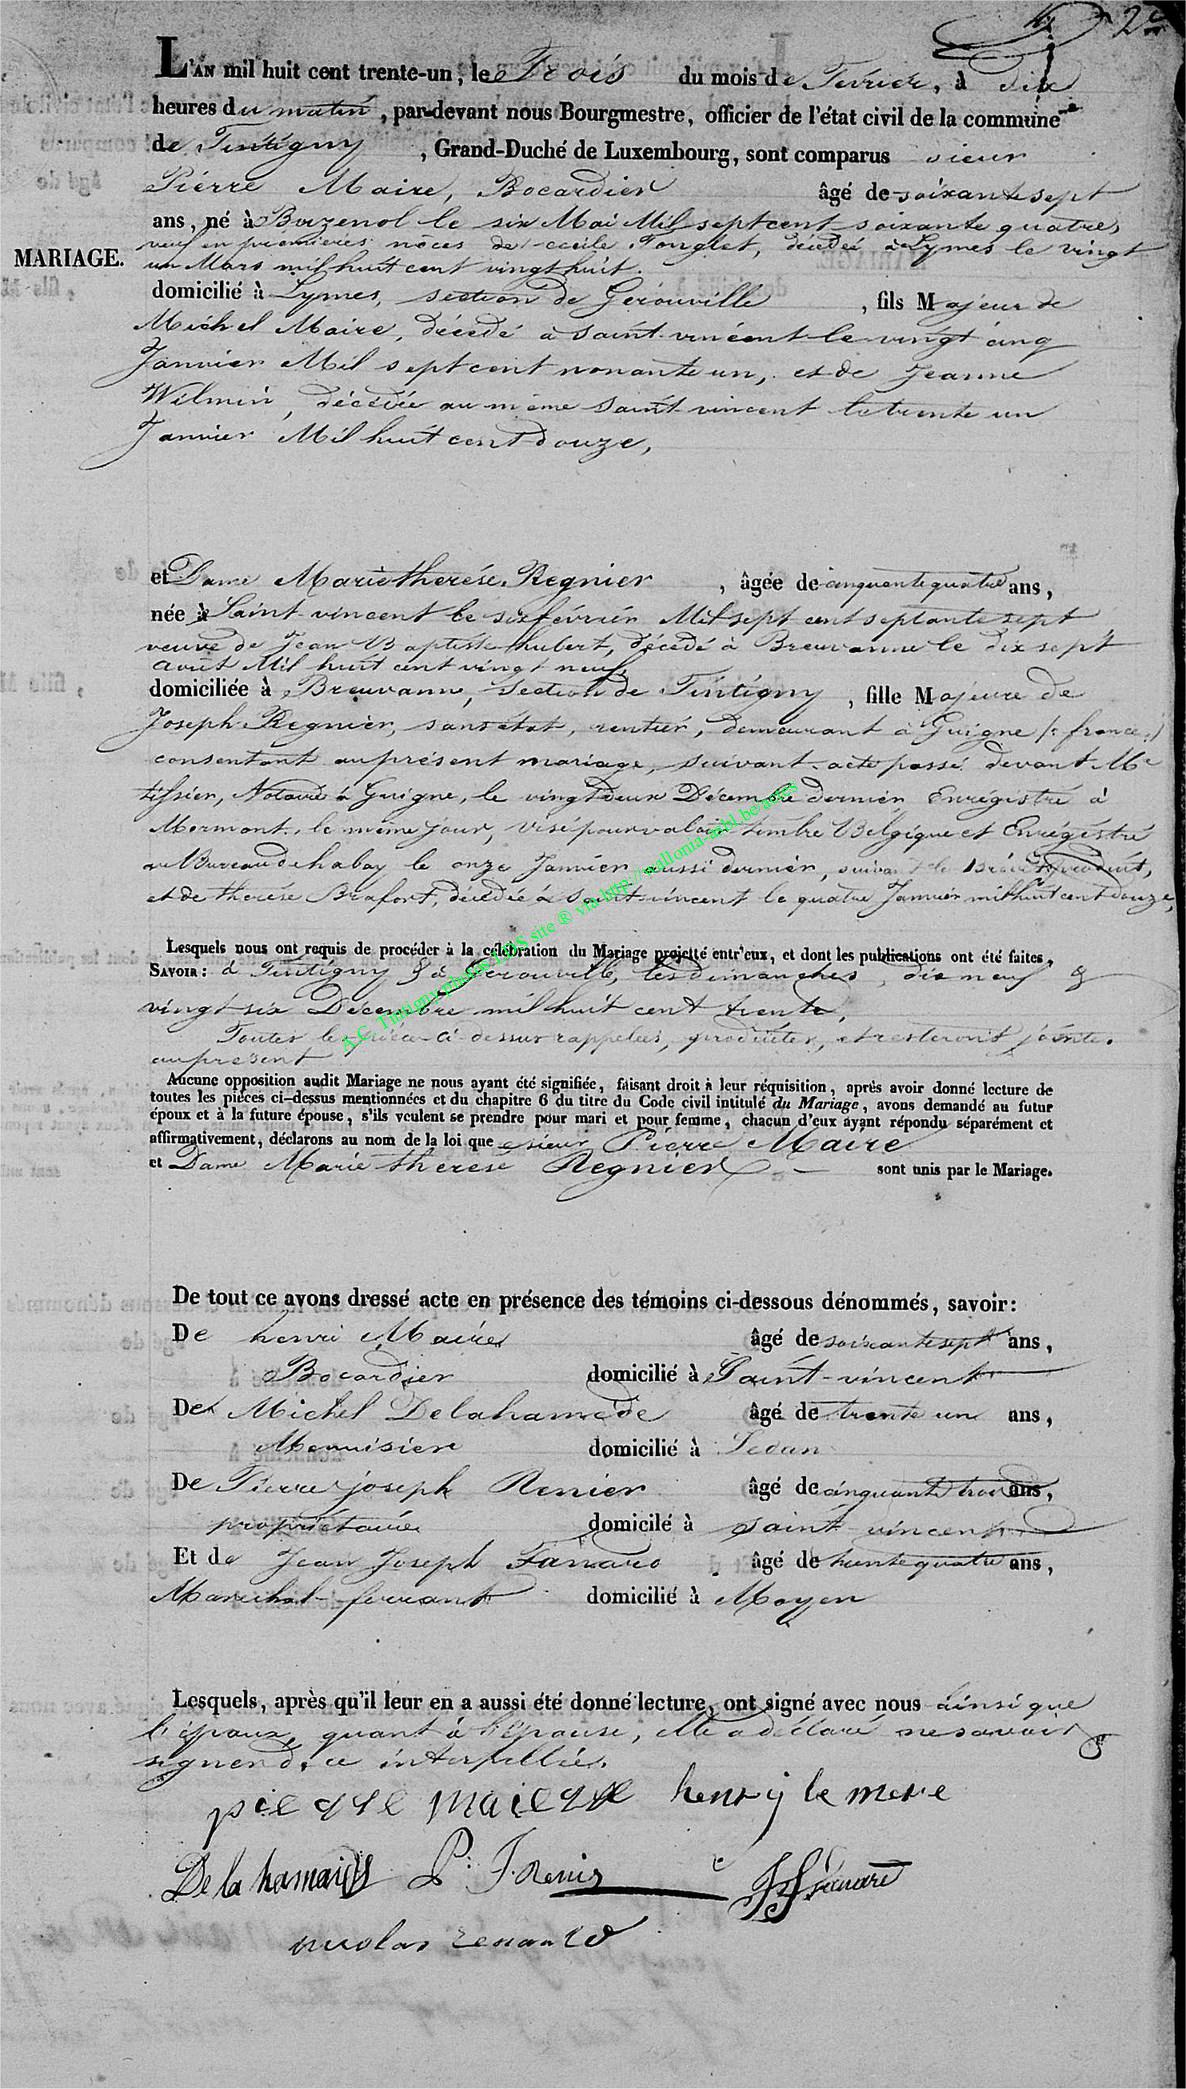 2e
L'AN mil huit cent trente-un, le Trois du mois de Fevrier, à dix
heures du matin, par-devant nous Bourgmestre, officier de l'état civil de la commune
de Tintigny, Grand-Duché de Luxembourg, sont comparus sieur
Piérre Maire, Bocardier âgé de soixante sept
ans, né à Buzenol le six Mai Mil sept cent soixante quatre,
veuf en premieres nôces de cecile Tonglet, décédée à Lymes le vingt
MARIAGE.
un Mars mil huit cent vingt huit.
domicilié à Lymes, section de Gérouville, fils Majeur de
Michel Maire, décédé à Saint-vincent le vingt cinq
Janvier Mil sept cent nonante un, et de Jeanne
Wilmin, décédée au même Saint-vincent le trente un
Janvier Mil huit cent douze,
et Dame Marie therése Regnier, âgée de cinquante quatre ans,
née à Saint-vincent le six février Mil sept cent septante sept
veuve de Jean Baptiste hubert, décédé à Breuvanne le dix sept
Août Mil huit cent vingt neuf,
domiciliée à Breuvanne, Section de Tintigny, fille Majeure de
Joseph Regnier, sans état, rentier, demeurant à Guigne (: france :)
consentant au présent mariage, suivant acte passé devant Me
tissier, Notaire à Guigne, le vingt deux Décembre dernier Enrégistré à
Mormont, le même jour, visé pour valoir timbre Belgique et Enrégistré
au Bureau de habay le onze Janvier aussi dernier, suivant le Brévet produit,
et de therése Brafort, décédée à Saint-vincent le quatre Janvier mil huit cent douze,
Lesquels nous ont requis de procéder à la célébration du Mariage projetté entr'eux, et dont les publications ont été faites,
SAVOIR : à Tintigny & à Gérouville, les dimanches, dix neuf &
vingt-six Décembre mil huit cent trente,
Toutes les pièces ci-dessus rappelées, produites, et resteront jointes
au présent
Aucune opposition audit Mariage ne nous ayant été signifiée, faisant droit à leur réquisition, après avoir donné lecture de
toutes les pièces ci-dessus mentionnées et du chapitre 6 du titre du Code civil intitulé du Mariage, avons demandé au futur
époux et à la future épouse, s'ils veulent se prendre pour mari et pour femme, chacun d'eux ayant répondu séparément et
affirmativement, déclarons au nom de la loi que sieur Pierre Maire
et Dame Marie therese Regnier sont unis par le Mariage.
De tout ce avons dressé acte en présence des témoins ci-dessous dénommés, savoir :
De henri Maire âgé de soixante sept ans,
Bocardier domicilié à Saint-vincent
De Michel Delahamede âgé de trente un ans,
Menuisier domicilié à Sedan
De Pierre joseph Renier âgé de cinquante trois ans,
propriétaire domicilé à saint vincent
Et de Jean Joseph Fanard âgé de trente quatre ans,
Maréchal-ferrant domicilié à Moyen
Lesquels, après qu'il leur en a aussi été donné lecture, ont signé avec nous ainsi que
l'époux, quant à l'épouse, elle a déclaré ne savoir
signer de ce interpellée.
pierre maire henry le mere
De la hamaide P: J. Renier
nicolas renard
A.C. Tintigny photos LDS site ® via http://wallonia-asbl.be/actes